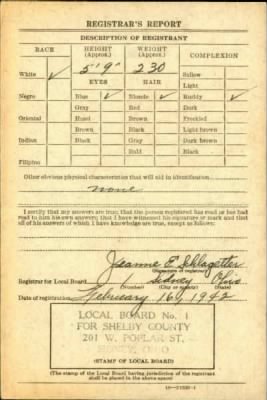 REGISTRAR'S REPORT
DESCRIPTION OF REGISTRANT
RACE HEIGHT (Approx.) WEIGHT (Approx.) COMPLEXION
White ✓ 5' 9" 230 Sallow
EYES HAIR Light
Negro Blue ✓ Blonde ✓ Ruddy ✓
Gray Red Dark
Oriental Hazel Brown Freckled
Brown Black Light brown
Indian Black Gray Dark brown
Bald Black
Filipino
Other obvious physical characteristics that will aid in identification
none
I certify that my answers are true; that the person registered has read or has had
read to him his own answers; that I have witnessed his signature or mark and that
all of his answers of which I have knowledge are true, except as follows:
Jeanne E Schlagetter
(Signature of registrar)
Registrar for Local Board Sidney Ohio
(Number) (City or county) (State)
Date of registration February 16, 1942
LOCAL BOARD No. 1
FOR SHELBY COUNTY
201 W. POPLAR ST.
SIDNEY, OHIO
(STAMP OF LOCAL BOARD)
(The stamp of the Local Board having jurisdiction of the registrant
shall be placed in the above space)